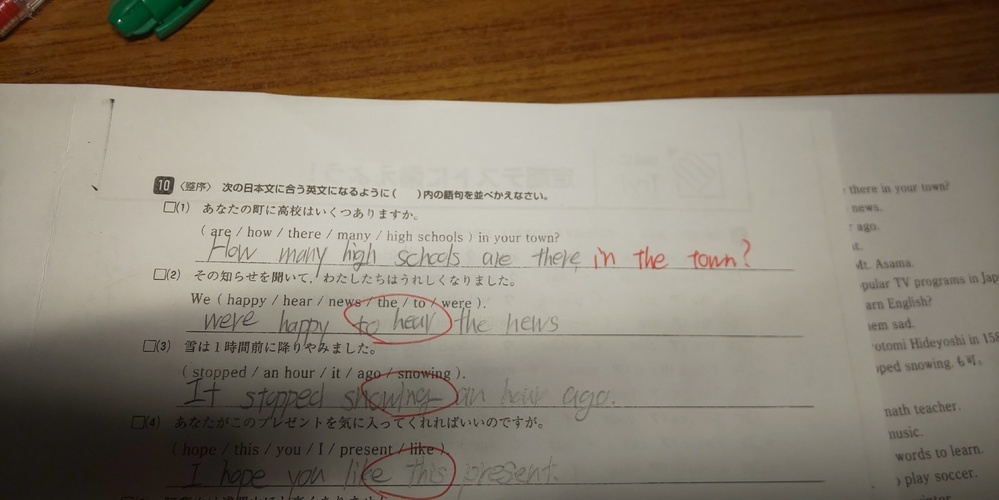 10 〈整序〉 次の日本文に合う英文になるように( )内の語句を並べかえなさい。
□(1) あなたの町に高校はいくつありますか。
( are / how / there / many / high schools ) in your town?
How many high schools are there in the town?
□(2) その知らせを聞いて,わたしたちはうれしくなりました。
We ( happy / hear / news / the / to / were ).
were happy to hear the news
□(3) 雪は1時間前に降りやみました。
( stopped / an hour / it / ago / snowing ).
It stopped snowing an hour ago.
□(4) あなたがこのプレゼントを気に入ってくれればいいのですが。
( hope / this / you / I / present / like )
I hope you like this present.
there in your town?
news.
ago.
Mt. Asama.
TV programs in
English?
sad.
Hideyoshi in
snowing. も可。
math teacher.
music.
words to learn.
play soccer.